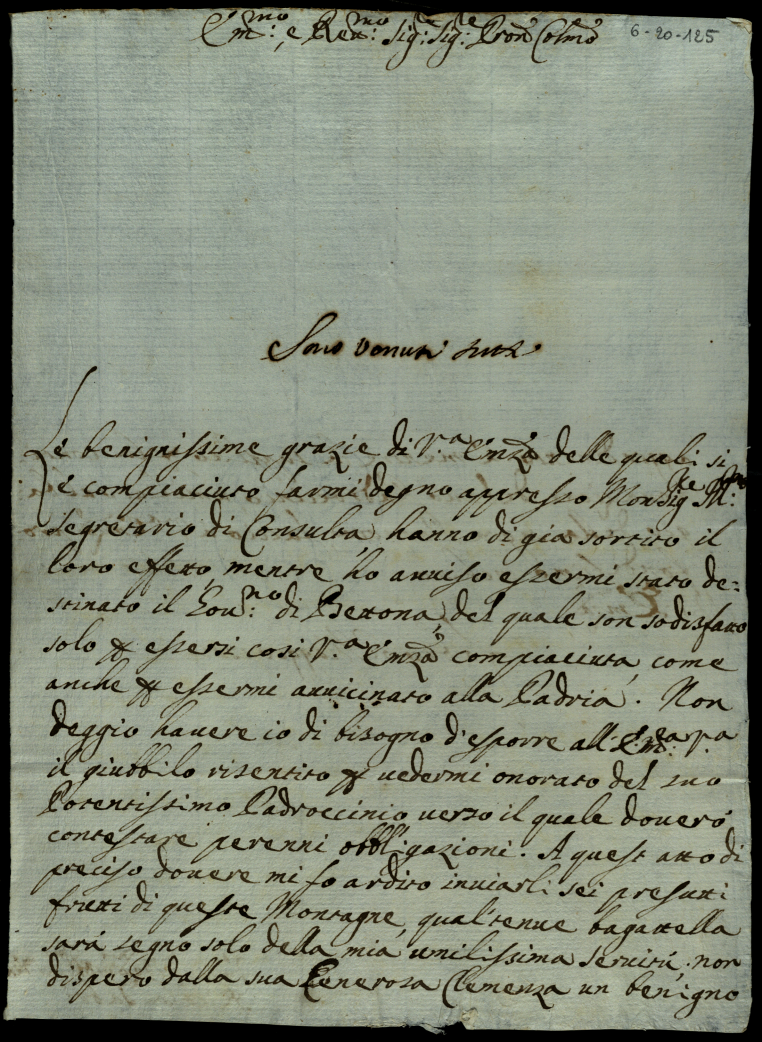 Em:mo, e Reu:mo Sig:re Sig:re Pron Colmo
6-20-125
Sono venuti
Le benignissime grazie di V.a Emza delle quali si
è compiaciuto farmi degno appresso Monsig.re
Segretario di Consulta hanno di già sortito il
loro effetto, mentre hò auuiso essermi stato de:
stinato il Gou:no di Bettona, del quale son sodisfatto
solo p essersi così V.a Emza compiaciuta, come
anche p essermi auuicinato alla Padria. Non
deggio hauere io di bisogno d'esporre all'Em:za V.a
il giubbilo risentito p uedermi onorato del suo
Potentissimo Padroccinio uerso il quale douerò
contestare perenni obbligazioni. A quest atto di
preciso douere mi fo ardito inuiarli sei presutti
frutti di queste Montagne, qual tenue bagattella
sarà segno solo della mia umilissima seruitù, non
dispero dalla sua Generosa Clemenza un benigno